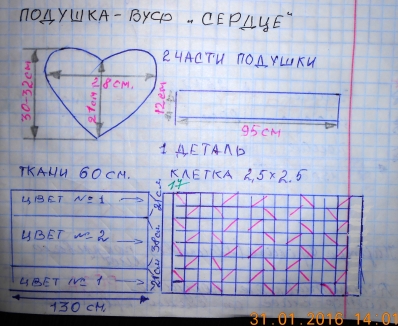 ПОДУШКА - ВУФ „СЕРДЦЕ"
2 ЧАСТИ ПОДУШКИ
30-32см
8 см.
21см
12см
95см
1 ДЕТАЛЬ
ТКАНИ 60 см. КЛЕТКА 2,5×2.5
17
ЦВЕТ №1
21см
ЦВЕТ №2
38см
ЦВЕТ №1
21см
130 см.
31.01.2016 14:01